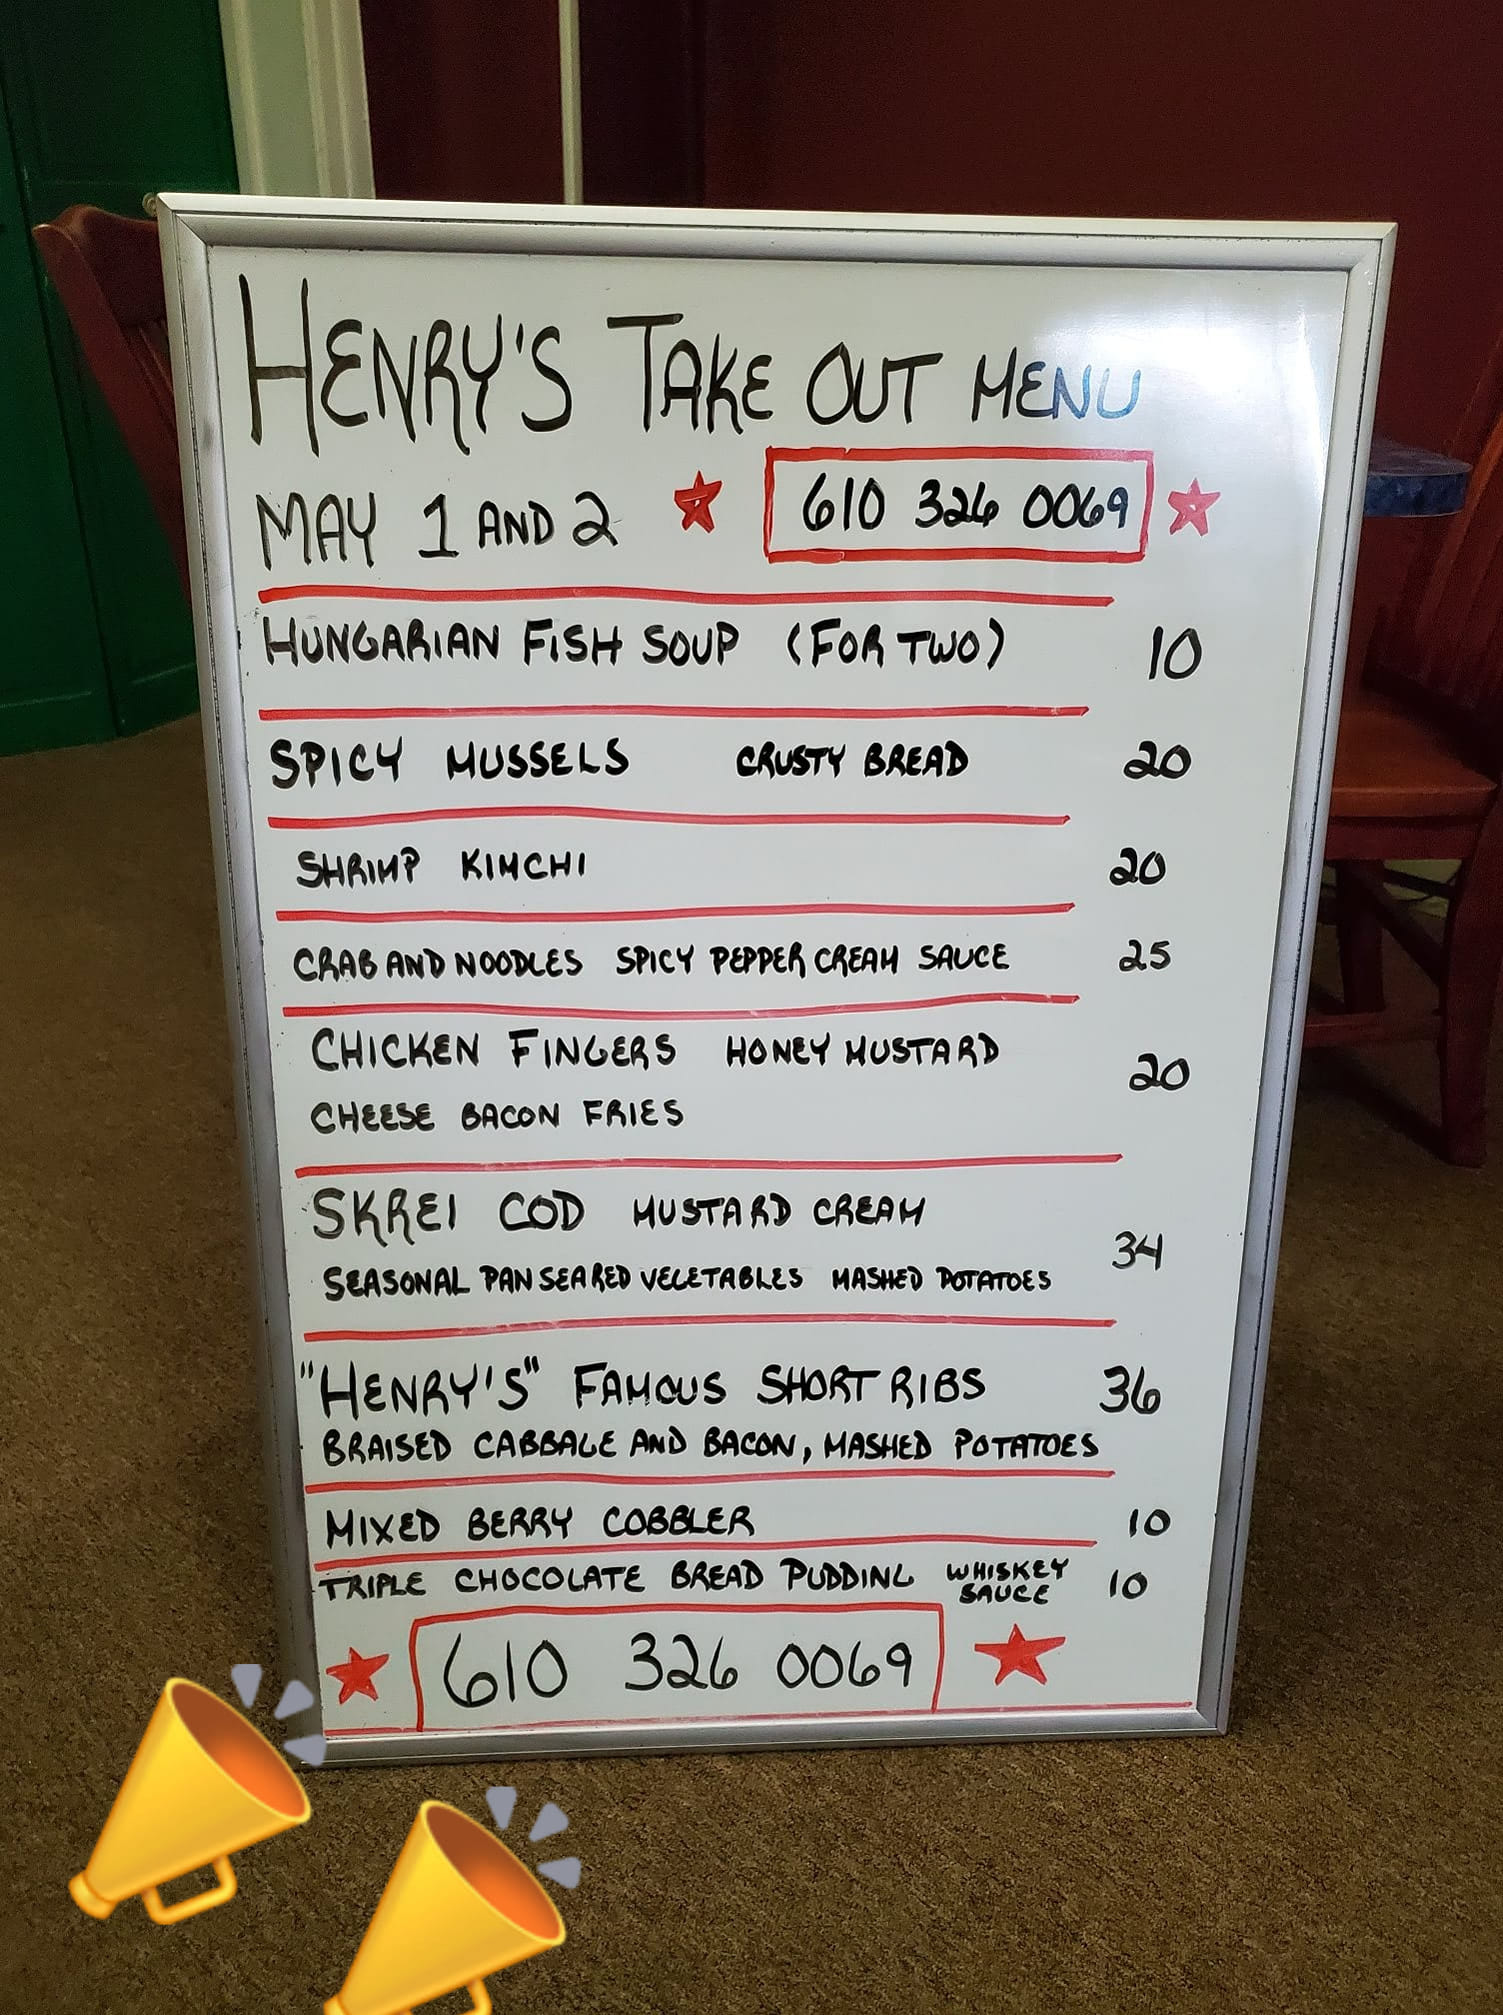 HENRY'S TAKE OUT MENU
MAY 1 AND 2 610 326 0069
HUNGARIAN FISH SOUP (FOR TWO) 10
SPICY MUSSELS CRUSTY BREAD 20
SHRIMP KIMCHI 20
CRAB AND NOODLES SPICY PEPPER CREAM SAUCE 25
CHICKEN FINGERS HONEY MUSTARD 20
CHEESE BACON FRIES
SKREI COD MUSTARD CREAM 34
SEASONAL PAN SEARED VEGETABLES MASHED POTATOES
"HENRY'S" FAMOUS SHORT RIBS 36
BRAISED CABBAGE AND BACON, MASHED POTATOES
MIXED BERRY COBBLER 10
TRIPLE CHOCOLATE BREAD PUDDING WHISKEY SAUCE 10
610 326 0069